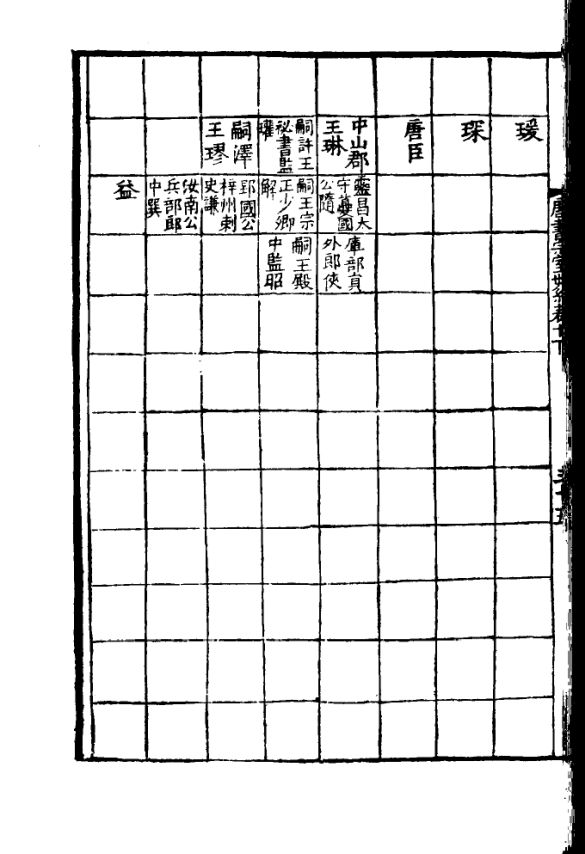 瑗
琛
唐臣
中山郡
王琳
靈昌太
守夔國
公隨
庫部員
外郎俠
嗣許王
祕書監
瓘
嗣王宗
正少卿
解
嗣王殿
中監昭
嗣澤
王璆
郢國公
梓州刺
史謙
汝南公
兵部郎
中巽
益